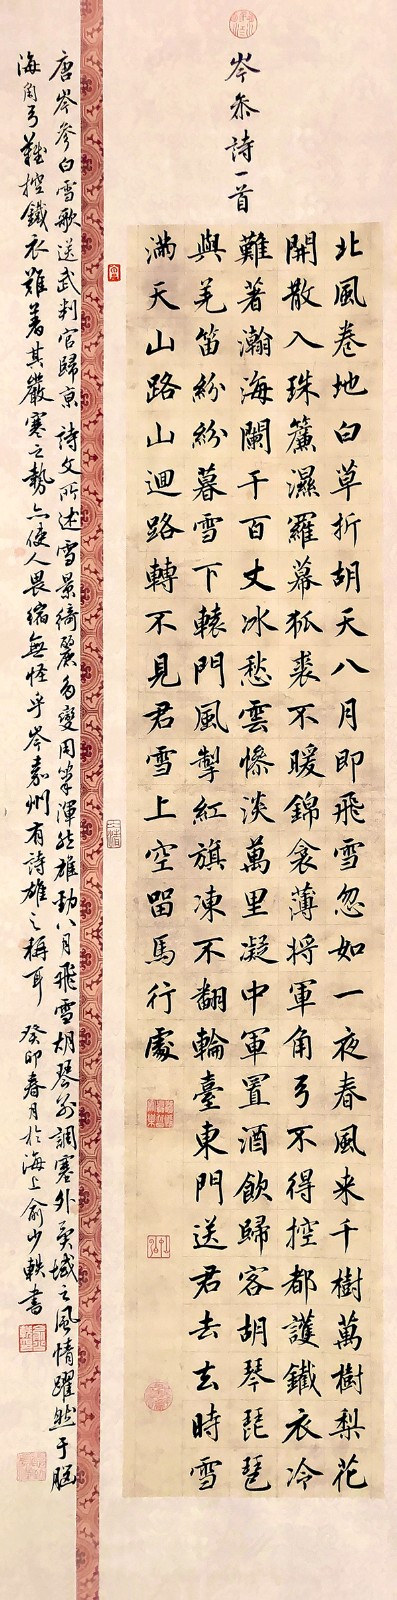 岑叅詩一首
北風卷地白草折胡天八月即飛雪忽如一夜春風来千樹萬樹梨花
開散入珠簾濕羅幕狐裘不暖錦衾薄将軍角弓不得控都護鐵衣冷
難著瀚海闌干百丈冰愁雲慘淡萬里凝中軍置酒飲歸客胡琴琵琶
與羌笛紛紛暮雪下轅門風掣紅旗凍不翻輪臺東門送君去去時雪
满天山路山迴路轉不見君雪上空留馬行處
唐岑參白雪歌送武判官歸京詩文所述雪景綺麗多變用筆渾然雄勁八月飛雪胡琴羌調塞外異域之風情躍然于腦
海角弓難控鐵衣難著其嚴寒之勢亦使人畏縮無怪乎岑嘉州有詩雄之稱耳癸卯春月於海上俞少軼書